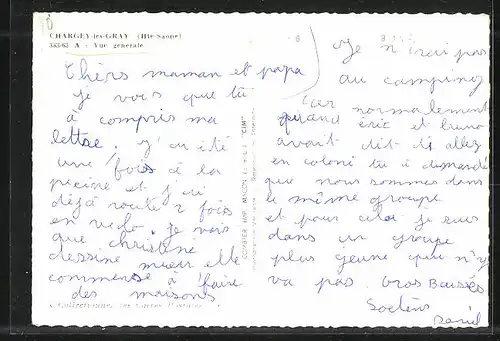 CHARGEY-les-GRAY (Hte-Saône)
383/65 A - Vue générale
Chers maman et papa
je vois que tu
à compris ma
lettre. j'ai été
une fois à la
picine et j'ai
déjà roulé 2 fois
en vélo. Je vois
que christine
dessine mieu elle
commense à faire
des maisons
Je n'irai pas
au camping
car normalement
quand éric et bruno
avait dit ti allez
en coloni tu à demandé
que nous sommes dans
le même groupe
et pour cela je suis
dans un groupe
plus jeune qui n'y
va pas. Gros Baisés
Daniel
COMBIER IMP. MACON "CIM"